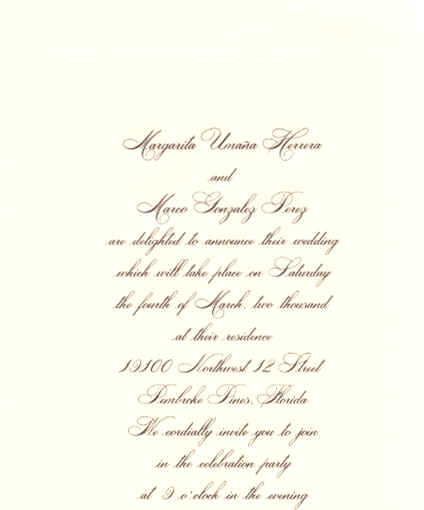 Margarita Umaña Herrera
and
Marco Gonzalez Perez
are delighted to announce their wedding
which will take place on Saturday
the fourth of March, two thousand
at their residence
19100 Northwest 12 Street
Pembroke Pines, Florida
We cordially invite you to join
in the celebration party
at 9 o'clock in the evening